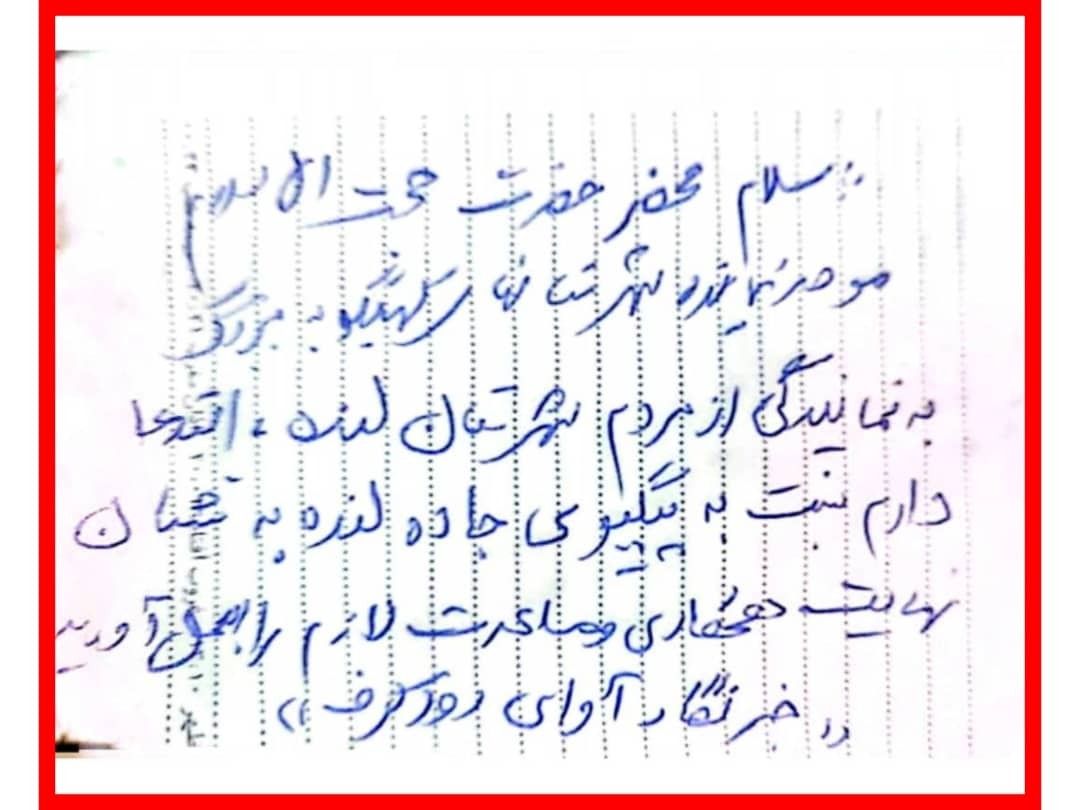 سلام محضر حضرت حجت الاسلام
موحد نماینده شهرستانها کهگیلویه بزرگ
به نمایندگی از مردم شهرستان لنده ، اتقدعا
دارم نسبت به پیگیری جاده لنده به تشان
نهایت همکاری ومساعدت لازم را بعمل آورید
« خبرنگار آوای رودکرف »